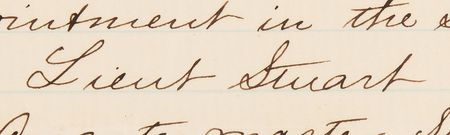 ointment in the s
Lieut Stuart